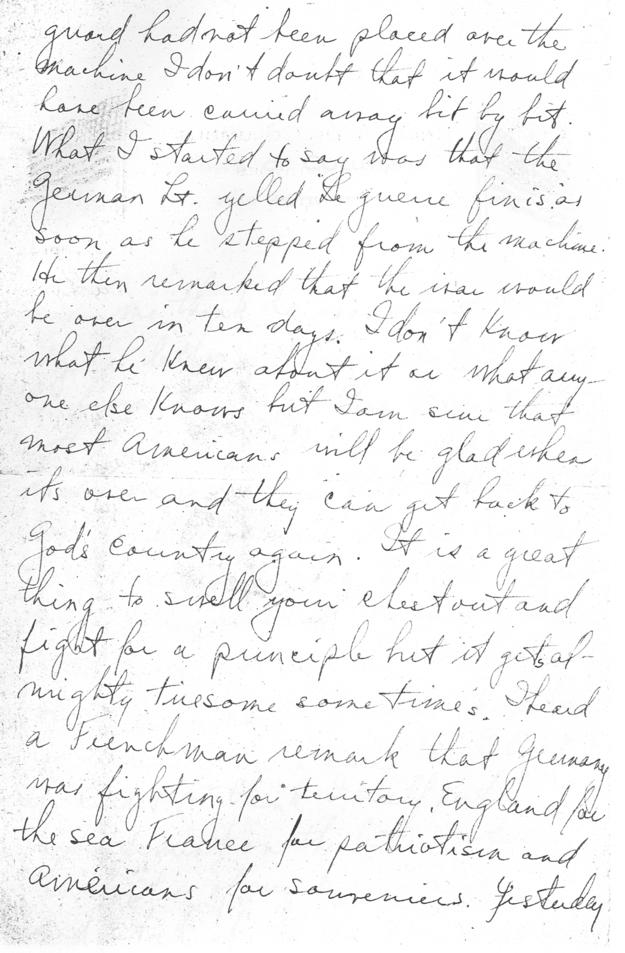 guard had not been placed over the
machine I don't doubt that it would
have been carried away bit by bit.
What I started to say was that the
German Lt. yelled "Le guerre finis" as
soon as he stepped from the machine.
He then remarked that the war would
be over in ten days. I don't know
what he knew about it or what any-
one else knows but I am sure that
most Americans will be glad when
its over and they can get back to
God's country again. It is a great
thing to swell your chest out and
fight for a principle but it gets al-
mighty tiresome sometimes. I heard
a Frenchman remark that Germany
was fighting for territory, England for
the sea France for patriotism and
Americans for souveniers. Yesterday